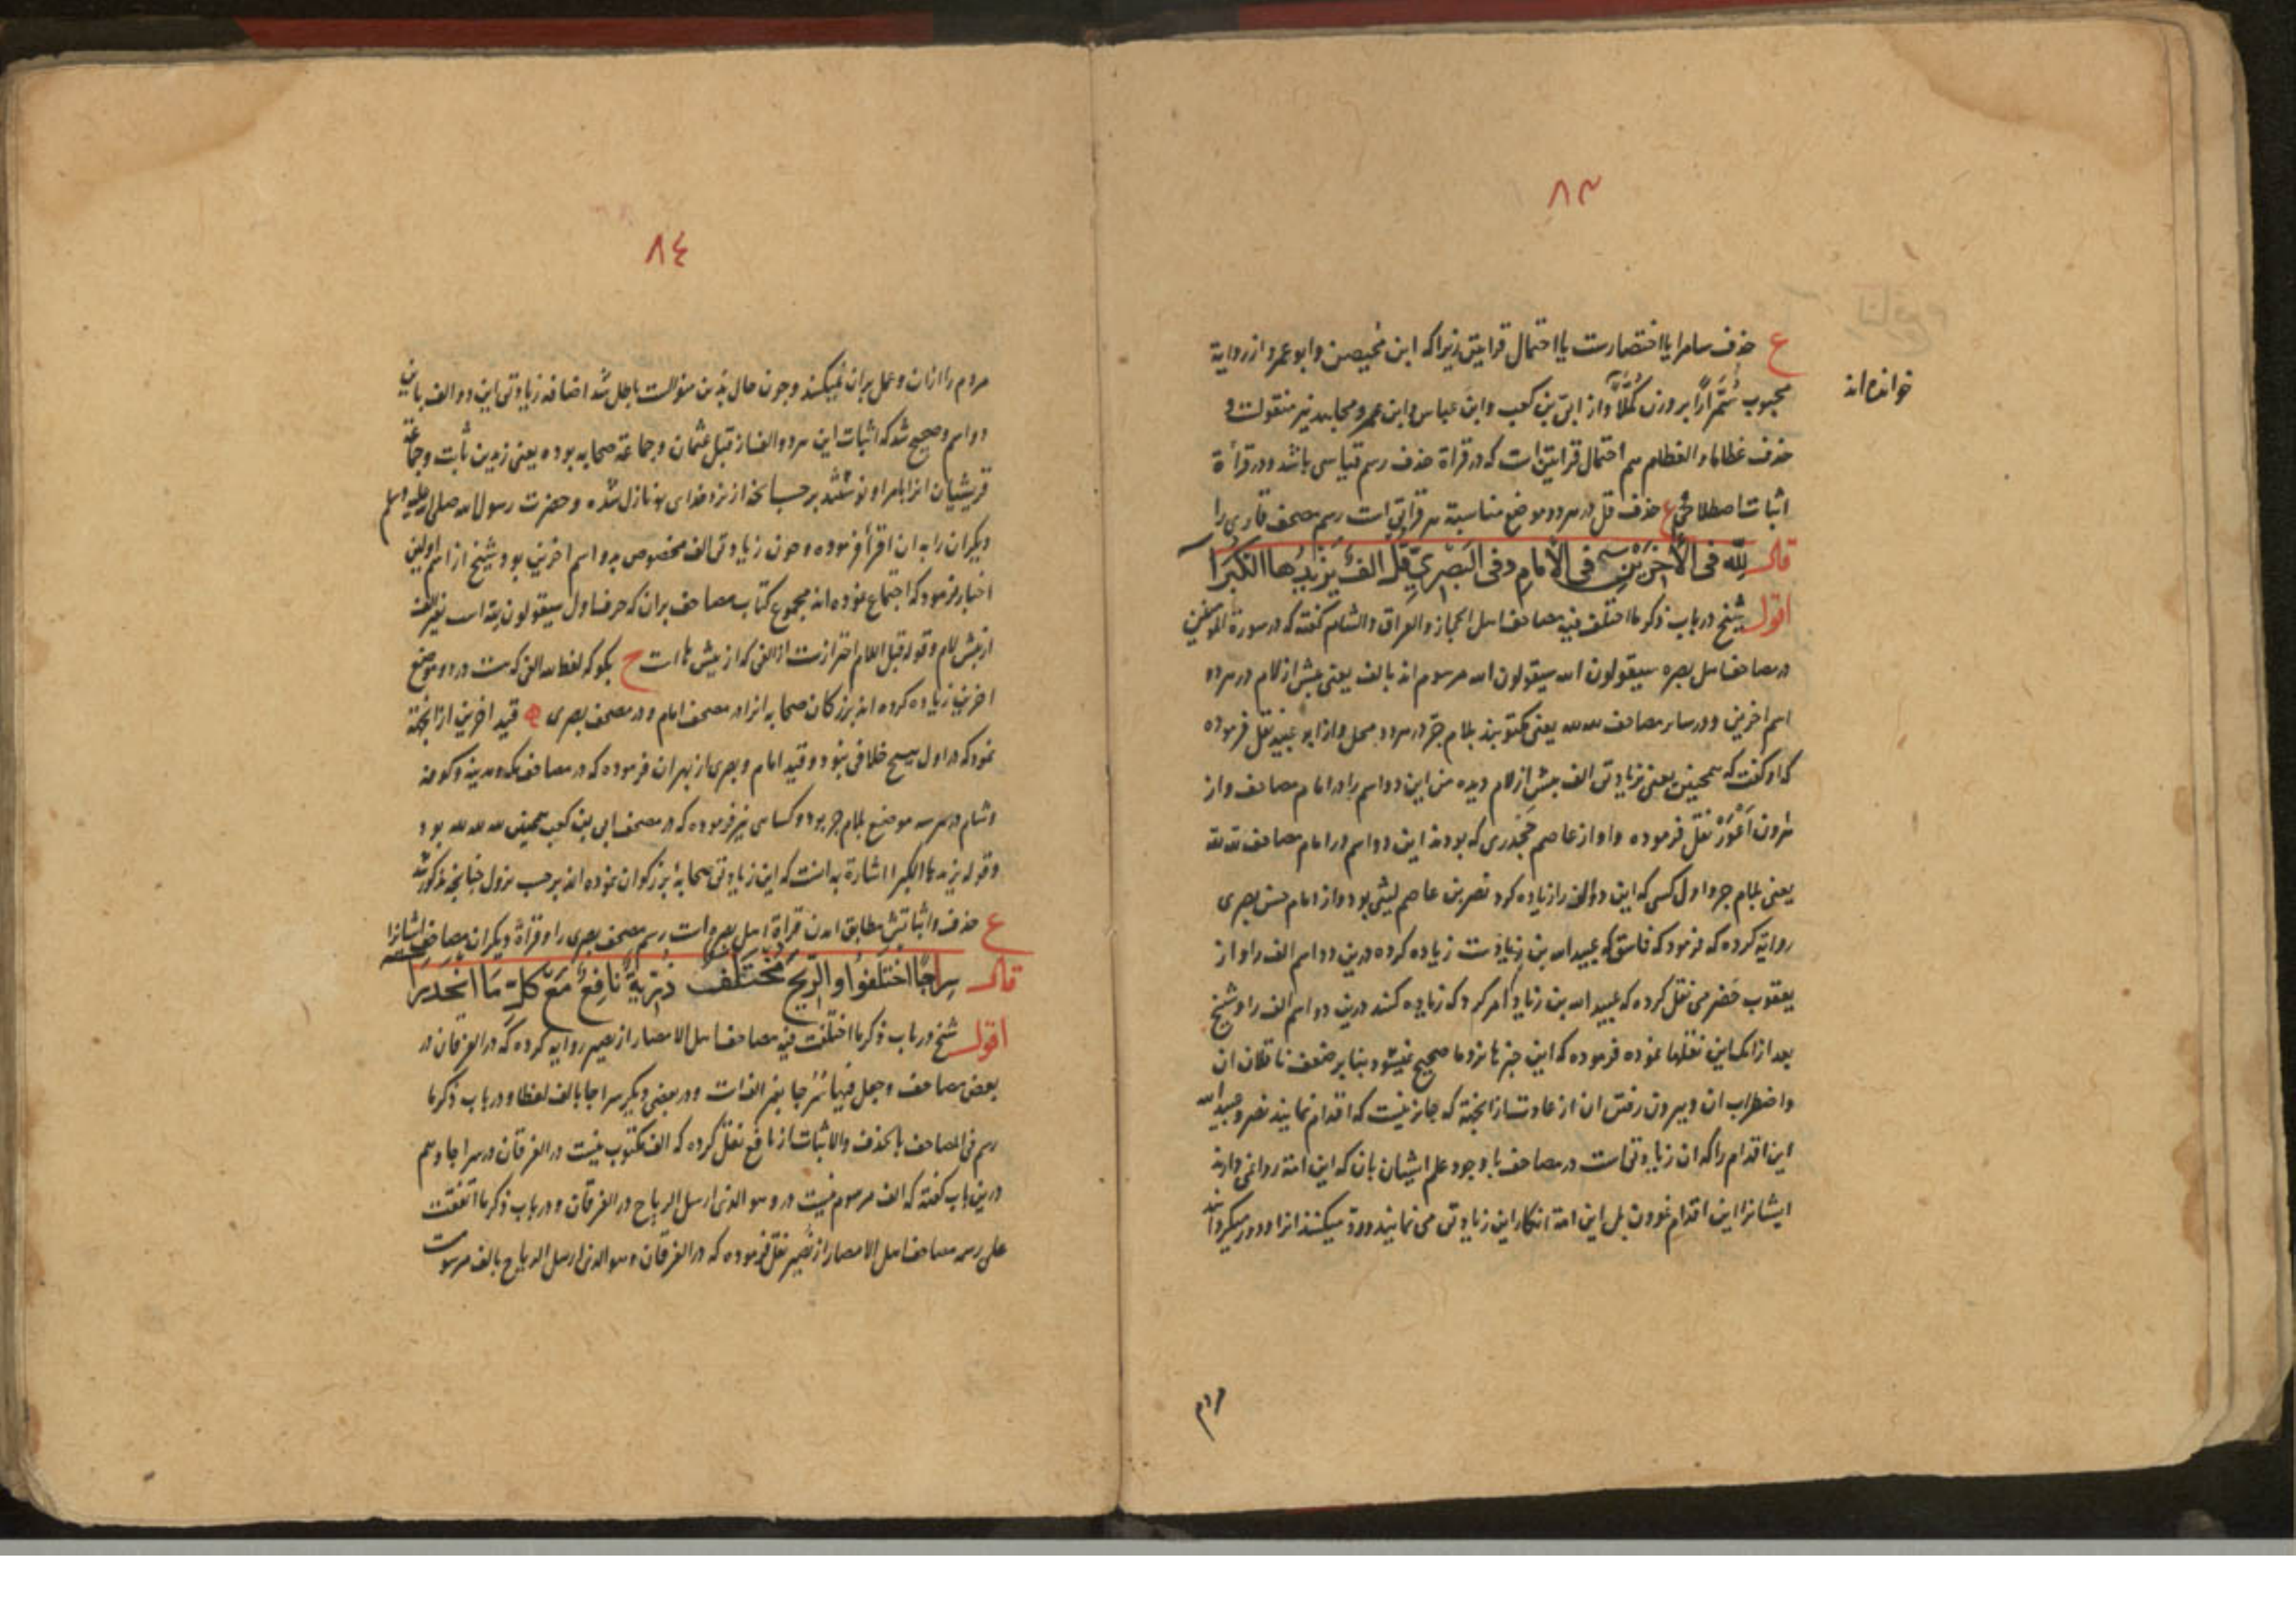 ٨٣
ع حذف سامرا یا اختصارست یا احتمال قراءتین زیرا که ابن محیصن وابو عمرو از روایة
خوانده اند
محبوب سُمَّرًا بر وزن کُمَّلًا واز ابیّ بن کعب وابن عباس وابن عمر ومجاهد نیز منقولست و
حذف عظاما والعظام هم احتمال قراءتین است که در قراة حذف رسم قیاسی باشد ودر قرأة
اثبات اصطلاحی ع حذف قل در هردو موضع مناسبة هر قراتی است رسم مصحف قاری را
قال لِلّه فی الأخِرَیْنِ فی الأمامِ وفی البَصْرِیِّ قُل الفٌ یَزِیدُها الکُبَرَا
اقول شیخ در باب ذکر ما اختلف فیه مصاحف اهل الحجاز والعراق والشام گفته که در سورة المؤمنین
در مصاحف اهل بصره سیقولون الله سیقولون الله مرسوم اند بالف یعنی پیش از لام در هردو
اسم اخرین ودر سایر مصاحف لله لله یعنی مکتوبند بلام جرّ در هردو محل واز ابو عبید نقل فرموده
که او گفت که همچنین یعنی بزیادتی الف پیش از لام دیده من این دو اسم را در امام مصاحف واز
هارون اَعْوَرْ نقل فرموده واو از عاصم جَحْدَری که بودند این دو اسم در امام مصاحف لله لله
یعنی بلام جر واول کسی که این دو الف را زیاده کرد نصر بن عاصم لیثی بود واز امام حسن بصری
روایة کرده که فرمود که فاسق که عبید الله بن زیادست زیاده کرده درین دو اسم الف را واز
یعقوب حَضرمی نقل کرده که عبید الله بن زیاد امر کرد که زیاده کنند درین دو اسم الف را وشیخ
بعد از انک این نقلها نموده فرموده که این خبرها نزد ما صحیح نمیشود بنا بر ضعف ناقلان ان
واضطراب ان وبیرون رفتن ان از عادت از انجهة که جایز نیست که اقدام نمایند نصر وعبید الله
این اقدام را که ان زیادتی است در مصاحف با وجود علم ایشان بان که این امة روا نمی دارند
ایشانرا این اقدام نمودن بل این امة انکار این زیادتی می نمایند ورد میکنند انرا ودور میکردانند
مردم
٨٤
مردم را از ان وعمل بران نمیکنند وجون حال بدین منوالست باطل شد اضافه زیادتی این دو الف باین
دو اسم وصحیح شد که اثبات این هردو الف از قبل عثمان وجماعة صحابه بوده یعنی زید بن ثابت وجماعة
قریشیان انرا بامر او نوشتند بر حسب انجه از نزد خدای نازل شده وحضرت رسول الله صلی الله علیه وسلم
دیکران را به ان اقرأ فرموده وجون زیادتی الف مخصوص بدو اسم اخرین بود شیخ از اسم اولین
اخبار فرمود که اجتماع نموده اند مجموع کتّاب مصاحف بران که حرف اول سیقولون لله است بغیر الف
از پیش لام وقوله قبل اللام احترازست از الفی که از پیش ها است ح بکو که لفظ الله الفی که هست در دو موضع
اخرین زیاده کرده اند بزرکان صحابه انرا در مصحف امام ودر مصحف بصری قید اخرین از انجهة
نمود که در اول هیچ خلافی نبود وقید امام وبصری از بهر ان فرموده که در مصاحف مکه ومدینه وکوفه
وشام در هر سه موضع بلام جر بود وکسایی نیز فرموده که در مصحف ابی بن کعب همین لله لله لله بود
وقوله یزیدها الکبرا اشارة بدانست که این زیادتی صحابهٔ بزرکوان نموده اند بر حسب نزول جنانجه مذکور شد
ع حذف واثباتش مطابق امدن قراة اهل بصره است رسم مصحف بصری را وقرأة دیکران مصاحف ایشانرا
قال سِرٰجًا اختَلَفُوا والرِّیحَ مُخْتَلَفٌ ذُرِّیَّةً نَافِعٌ مَعْ کلِّ مَا انْحَدَرَا
اقول شیخ در باب ذکر ما اختلفت فیه مصاحف اهل الامصار از نصیر روایه کرده که در الفرقان در
بعض مصاحف وجعل فیها سُرُجا بغیر الف است ودر بعضی دیکر سراجا بالف لفظا ودر باب ذکر ما
رسم فی المصاحف بالحذف والاثبات از نافع نقل کرده که الف مکتوب نیست در الفرقان در سراجا وهم
درین باب گفته که الف مرسوم نیست در وهو الذی ارسل الریاح در الفرقان ودر باب ذکر ما اتفقت
علی رسمه مصاحف اهل الامصار از نصیر نقل فرموده که در الفرقان وهو الذی ارسل الریاح بالف مرسوست